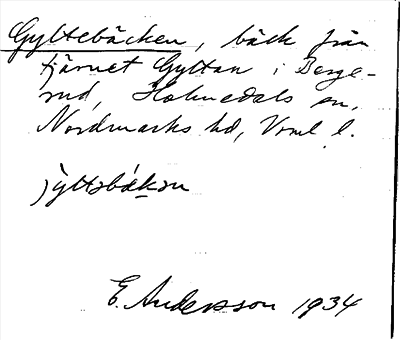 Gyltebäcken, bäck från
tjärnet Gyltan i Berge-
rud, Holmedals sn,
Nordmarks hd, Vrml. l.
jyltəbäkən
E. Andersson 1934